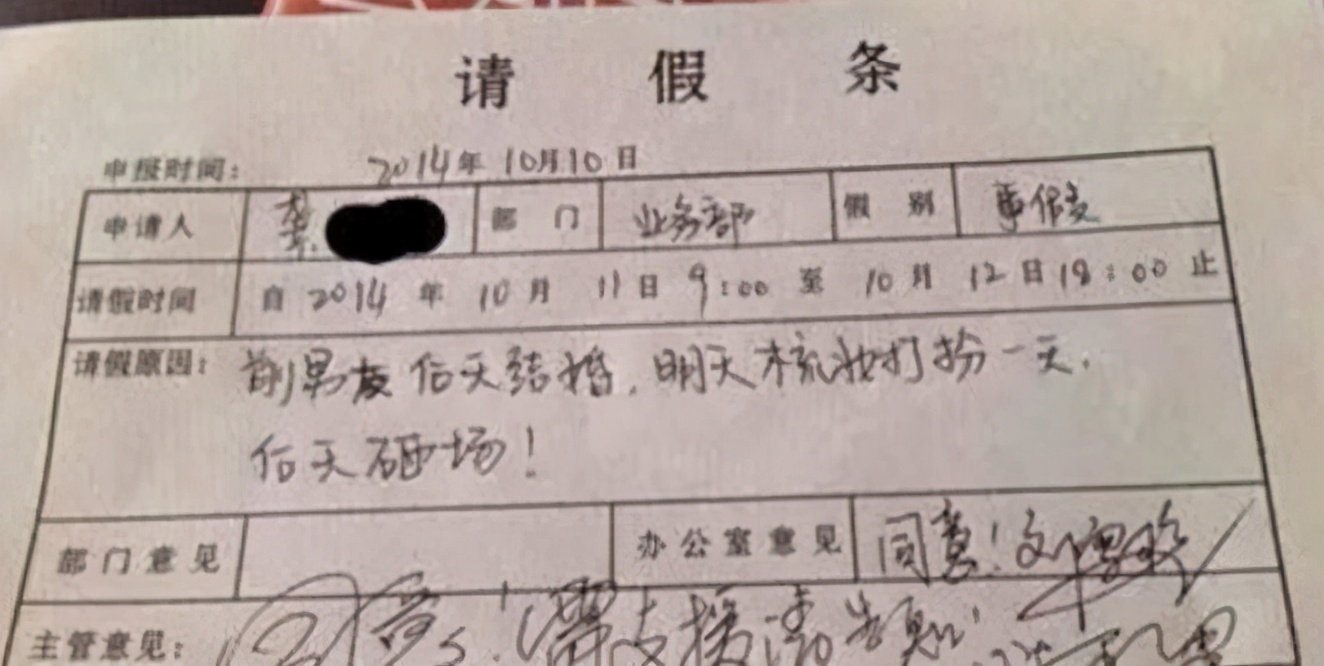 请假条
申报时间： 2014年10月10日
申请人 李 部门 业务部 假别 事假
请假时间 自2014年10月11日9:00至10月12日18:00止
请假原因：前男友后天结婚，明天梳妆打扮一天，
后天砸场！
部门意见 办公室意见 同意！
主管意见： 同意！需支援请告知！